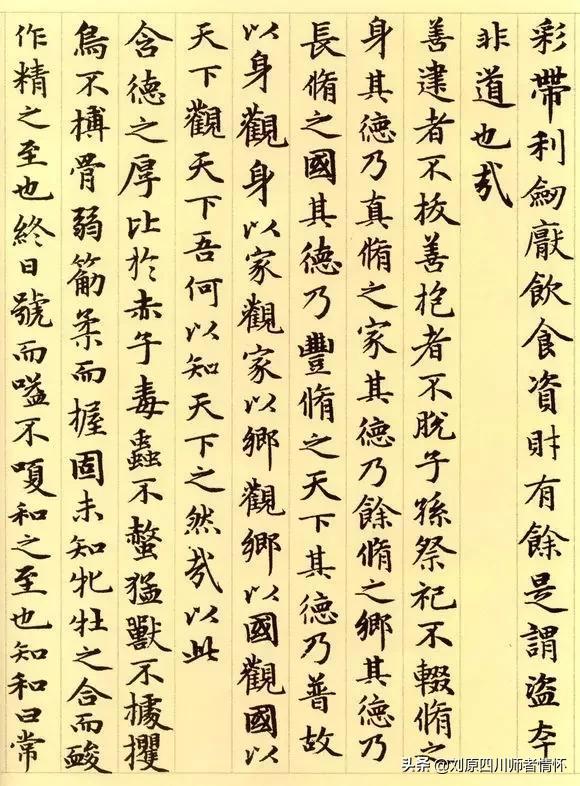 彩帶利劒厭飲食資財有餘是謂盜夲
非道也哉
善建者不拔善抱者不脫子孫祭祀不輟脩之
身其德乃真脩之家其德乃餘脩之鄉其德乃
長脩之國其德乃豐脩之天下其德乃普故
以身觀身以家觀家以鄉觀鄉以國觀國以
天下觀天下吾何以知天下之然哉以此
含德之厚比於赤子毒蟲不螫猛獸不據攫
鳥不搏骨弱筋柔而握固未知牝牡之合而酸
作精之至也終日號而嗌不嗄和之至也知和曰常
头条 @刘原四川师者情怀